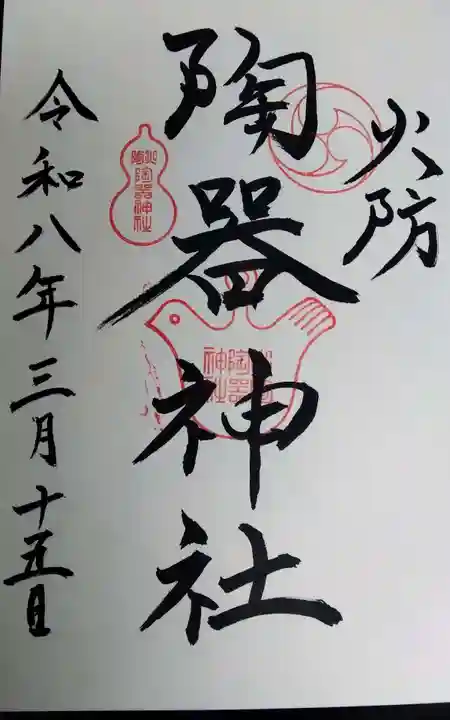 火防
陶器神社
令和八年三月十五日
陶器神社
陶器神社